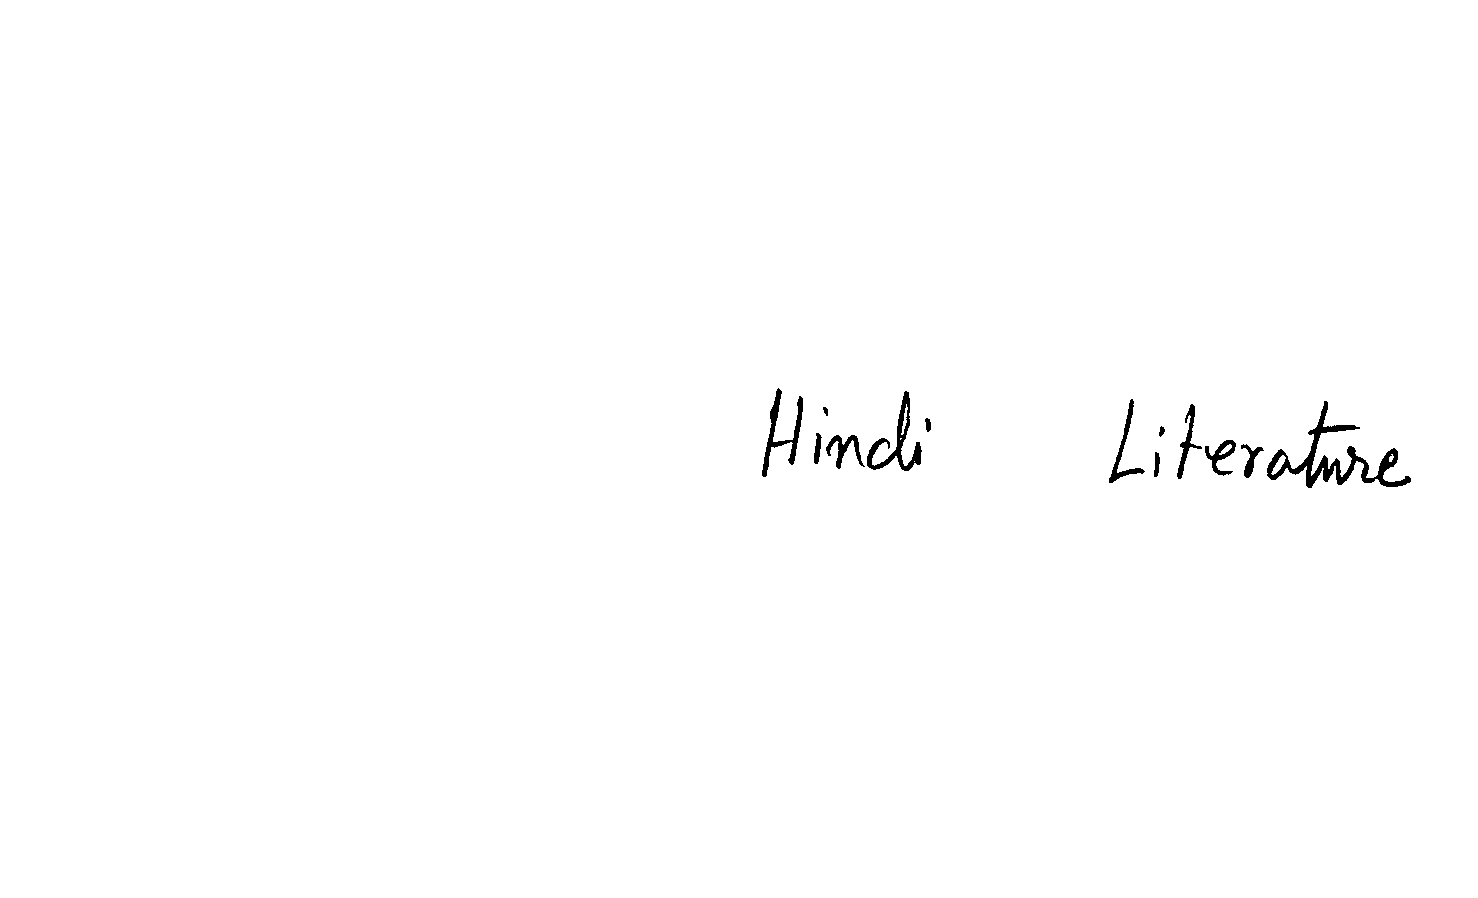 Hindi Literature